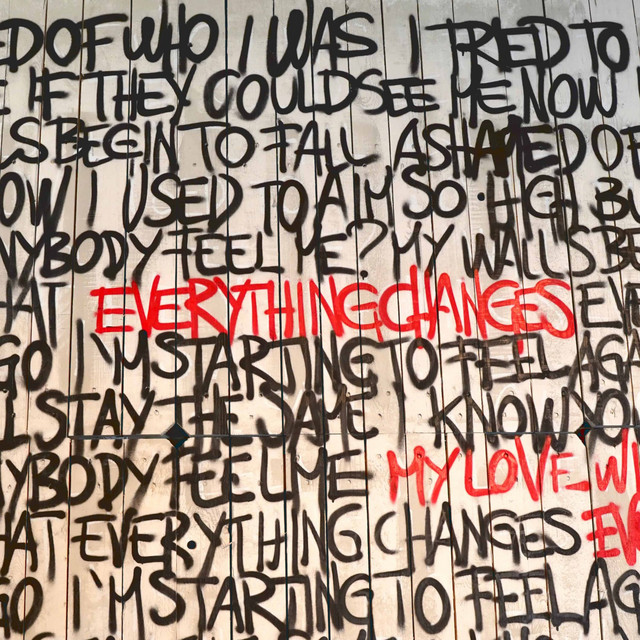 ED OF WHO I WAS I TRIED TO
E IF THEY COULD SEE ME NOW
LS BEGIN TO FALL ASHAMED OF
OW I USED TO AIM SO HIGH BU
NYBODY FEEL ME? MY WALLS BE
HAT EVERYTHING CHANGES EV
GO I'M STARTING TO FEEL AGA
L STAY THE SAME I KNOW YOU
NYBODY FEEL ME MY LOVE WI
HAT EVERYTHING CHANGES EVE
GO I'M STARTING TO FEEL AG